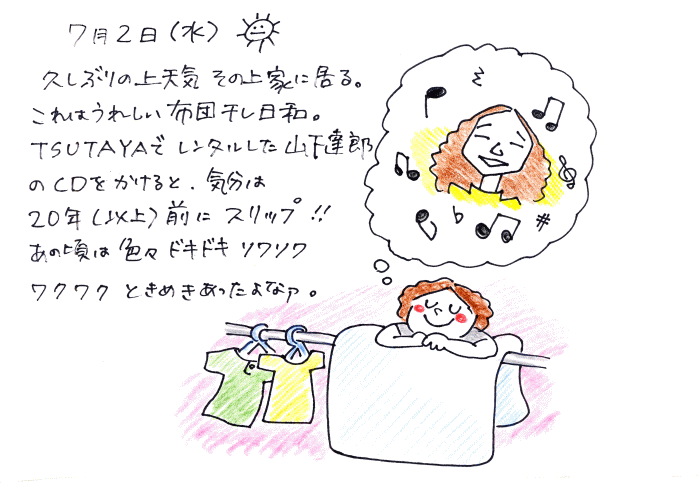 7月2日(水)
久しぶりの上天気 その上家に居る。
これはうれしい布団干し日和。
TSUTAYAでレンタルした山下達郎
のCDをかけると、気分は
20年(以上)前にスリップ!!
あの頃は色々ドキドキソワソワ
ワクワクときめきあったよなァ。